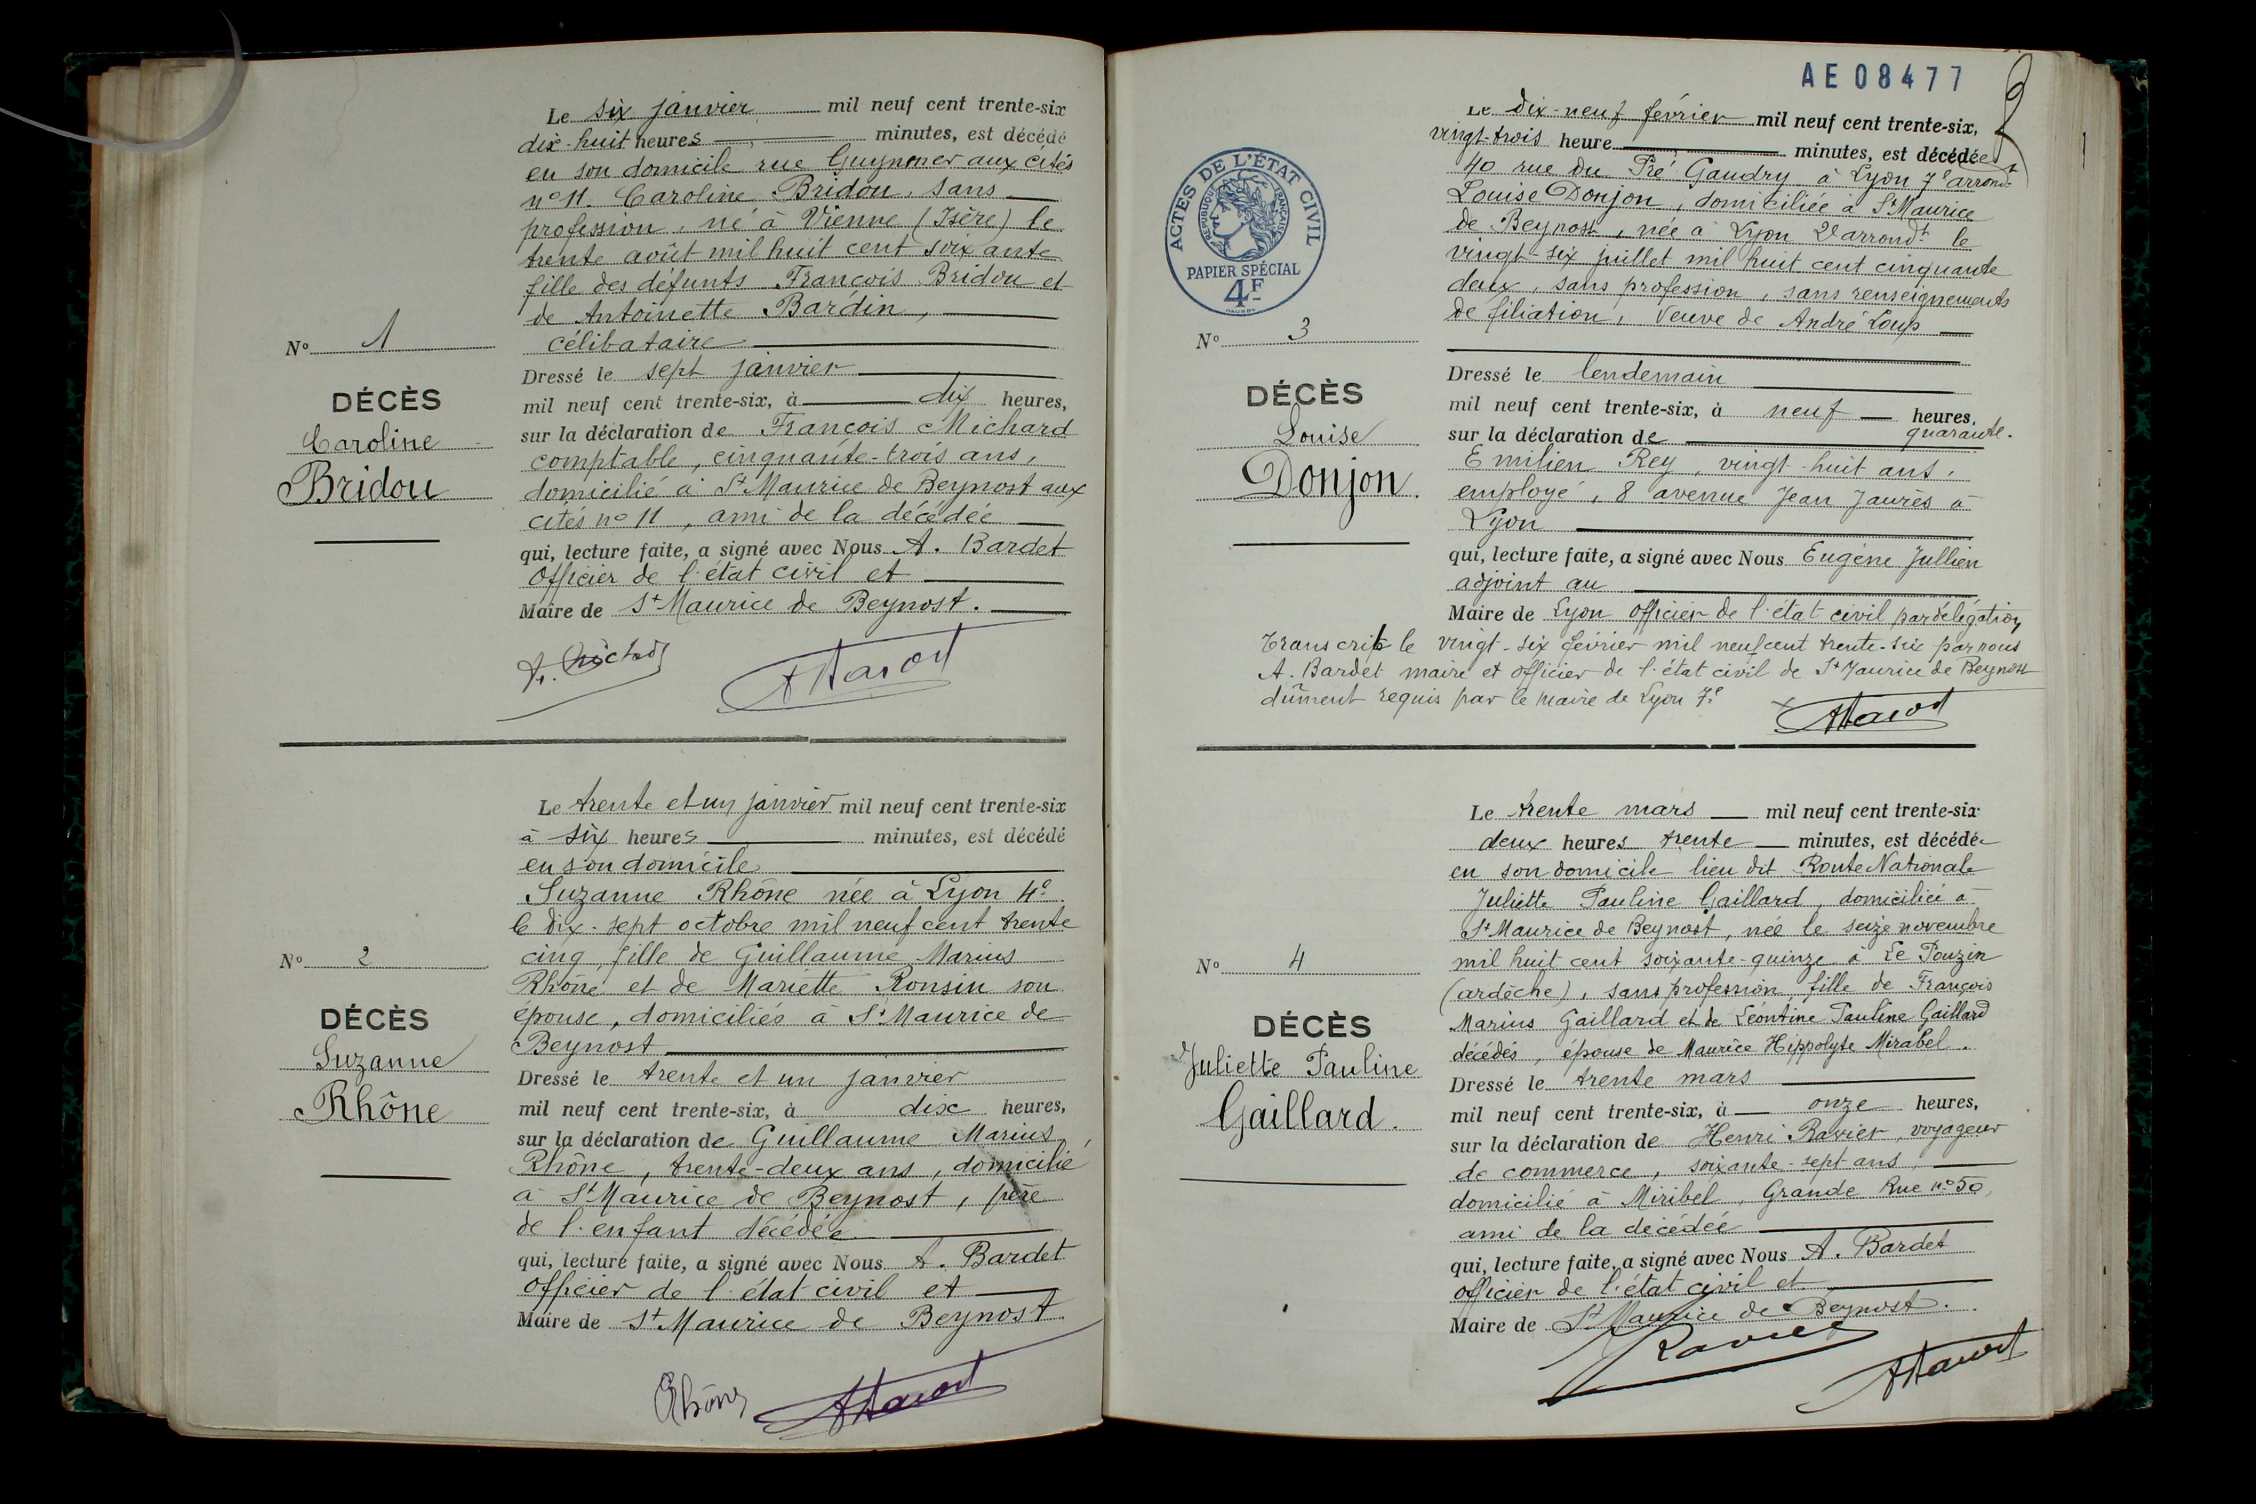 Le six janvier mil neuf cent trente-six
dix-huit heures minutes, est décédé
en son domicile rue Guynmer aux cités
n° 11. Caroline Bridou, sans
profession, né à Vienne (Isère) le
trente août mil huit cent soixante
fille des défunts François Bridou et
de Antoinette Bardin,
célibataire
N° 1
DÉCÈS
Caroline
Bridou
Dressé le sept janvier
mil neuf cent trente-six, à dix heures,
sur la déclaration de François Michard
comptable, cinquante-trois ans,
domicilié à St Maurice de Beynost aux
cités n° 11, ami de la décédée
qui, lecture faite, a signé avec Nous A. Bardet
Officier de l'état civil et
Maire de St Maurice de Beynost.
Le trente et un janvier mil neuf cent trente-six
à six heures minutes, est décédé
en son domicile
Suzanne Rhône née à Lyon 4e
le dix-sept octobre mil neuf cent trente
cinq, fille de Guillaume Marius
Rhône et de Mariette Ronsin son
épouse, domiciliés à St Maurice de
Beynost
N° 2
DÉCÈS
Suzanne
Rhône
Dressé le trente et un janvier
mil neuf cent trente-six, à dix heures,
sur la déclaration de Guillaume Marius
Rhône, trente-deux ans, domicilié
à St Maurice de Beynost, père
de l'enfant décédée
qui, lecture faite, a signé avec Nous A. Bardet
Officier de l'état civil et
Maire de St Maurice de Beynost
Rhône
AE 08477
ACTES DE L'ÉTAT CIVIL
RÉPUBLIQUE FRANÇAISE
PAPIER SPÉCIAL
4F
Le dix-neuf février mil neuf cent trente-six,
vingt-trois heure minutes, est décédée
40 rue du Pré Gaudry à Lyon 7e arrondt
Louise Donjon, domiciliée à St Maurice
de Beynost, née à Lyon 2e arrondt le
vingt-six juillet mil huit cent cinquante
deux, sans profession, sans renseignements
de filiation, Veuve de André Loup
N° 3
DÉCÈS
Louise
Donjon.
Dressé le lendemain
mil neuf cent trente-six, à neuf heures,
quarante.
sur la déclaration de
Emilien Rey, vingt-huit ans,
employé, 8 avenue Jean Jaurès à
Lyon
qui, lecture faite, a signé avec Nous Eugène Jullien
adjoint au
Maire de Lyon officier de l'état civil par délégation
Transcrit le vingt-six février mil neuf cent trente-six par nous
A. Bardet maire et officier de l'état civil de St Maurice de Beynost
dûment requis par le maire de Lyon 7e
Le trente mars mil neuf cent trente-six
deux heures trente minutes, est décédée
en son domicile lieu dit Route Nationale
Juliette Pauline Gaillard, domiciliée à
St Maurice de Beynost, née le seize novembre
mil huit cent soixante-quinze à Le Pouzin
(ardèche), sans profession, fille de François
Marius Gaillard et de Léontine Pauline Gaillard
décédés, épouse de Maurice Hippolyte Mirabel.
N° 4
DÉCÈS
Juliette Pauline
Gaillard.
Dressé le trente mars
mil neuf cent trente-six, à onze heures,
sur la déclaration de Henri Ravier, voyageur
de commerce, soixante-sept ans,
domicilié à Miribel, Grande Rue n° 50,
ami de la décédée
qui, lecture faite, a signé avec Nous A. Bardet
officier de l'état civil et
Maire de St Maurice de Beynost.
Ravier